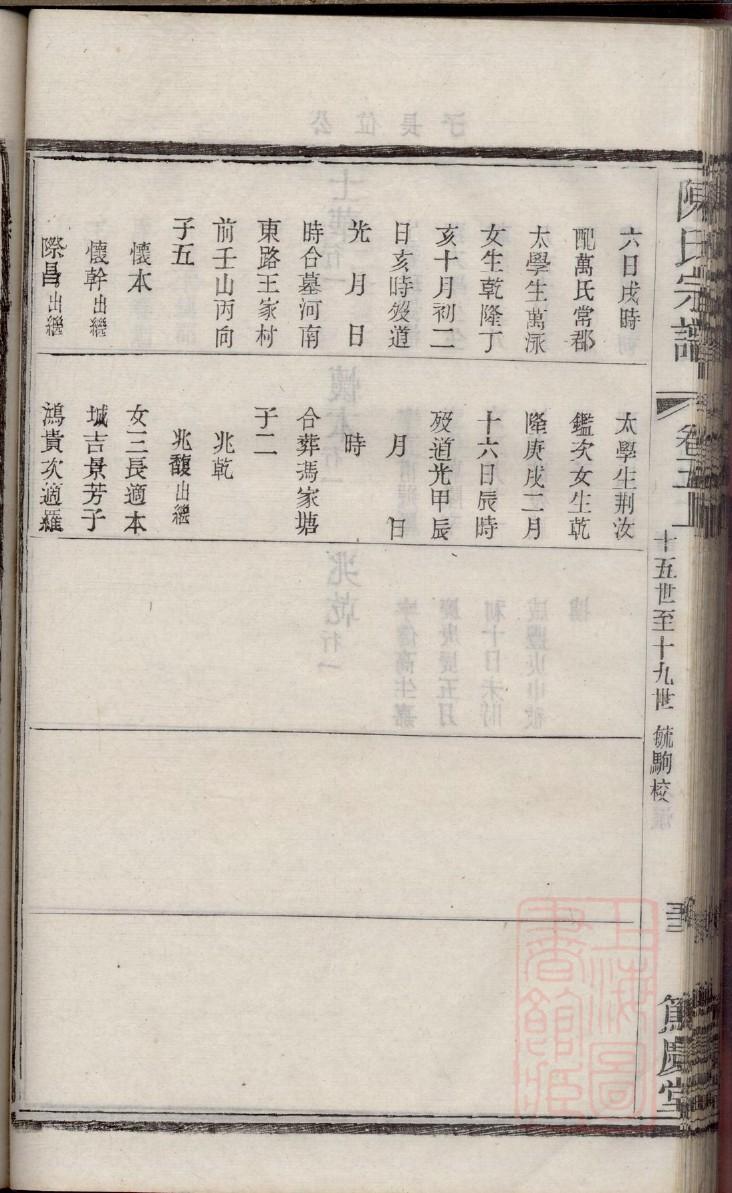 陳氏宗譜
卷五上
十五世至十九世 毓駒校
篤慶堂
六日戌時
配萬氏常郡
太學生萬泳
女生乾隆丁
亥十月初二
日亥時歿道
光 月 日
時合墓河南
東路王家村
前壬山丙向
子五
懷本
懷幹出繼
際昌出繼
太學生荆汝
鑑次女生乾
隆庚戌二月
十六日辰時
歿道光甲辰
月 日
時
合葬馮家塘
子二
兆乾
兆馥出繼
女三長適本
城吉景芳子
鴻貴次適羅
上海圖
書館藏